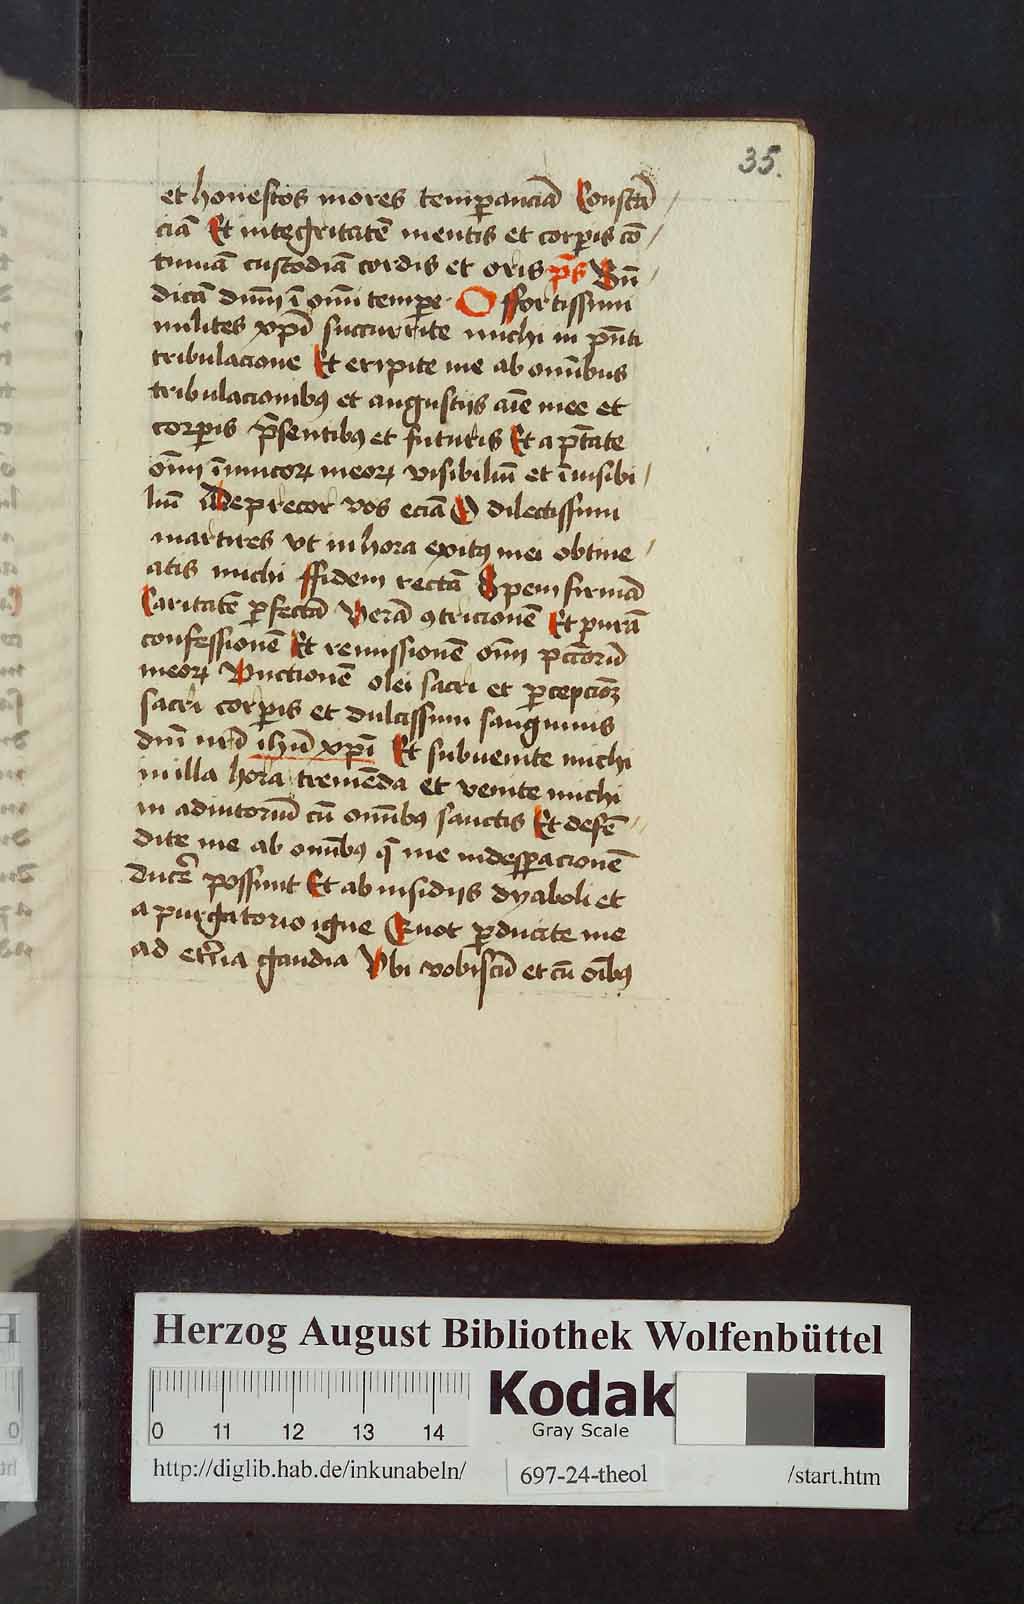 35.
et honestos mores temperanciā Constā
ciā Et integritatē mentis et corpis cō
tinuā custodiā cordis et oris ps̄ Bn̄
dicā dnm̄ ī om̄i tempe O ffortissimi
milites xpī succurrite michi in pn̄ti
tribulacione Et eripite me ab omnībus
tribulacionibꝰ et angustijs aīe mee et
corpis pn̄sentibꝰ et futuris Et a ptāte
om̄i īimicoꝝ meoꝝ visibiliū et īuisibi
liū Deprecor vos eciā O dilectissimi
martires vt in hora exitꝰ mei obtine
atis michi ffidem rectā Spem firmā
Caritatē pfectā Verā ꝯtricionē Et purā
confessionē Et remissionē om̄i pctorū
meoꝝ Vnctionē olei sacri et pcepcionē
sacri corpis et dulcissimi sanguinis
dnī nrī ihū xpī Et subuenite michi
in illa hora tremēda et venite michi
in adiutoriū cū omībꝰ sanctis Et defē
dite me ab omībꝰ q̄ me in despacionē
ducē possunt Et ab insidijs dyaboli et
a purgatorio igne Eruat pducite me
ad etn̄a gaudia Vbi vobiscū et cū oībꝰ
Herzog August Bibliothek Wolfenbüttel
0 11 12 13 14
Kodak
Gray Scale
http://diglib.hab.de/inkunabeln/ 697-24-theol /start.htm